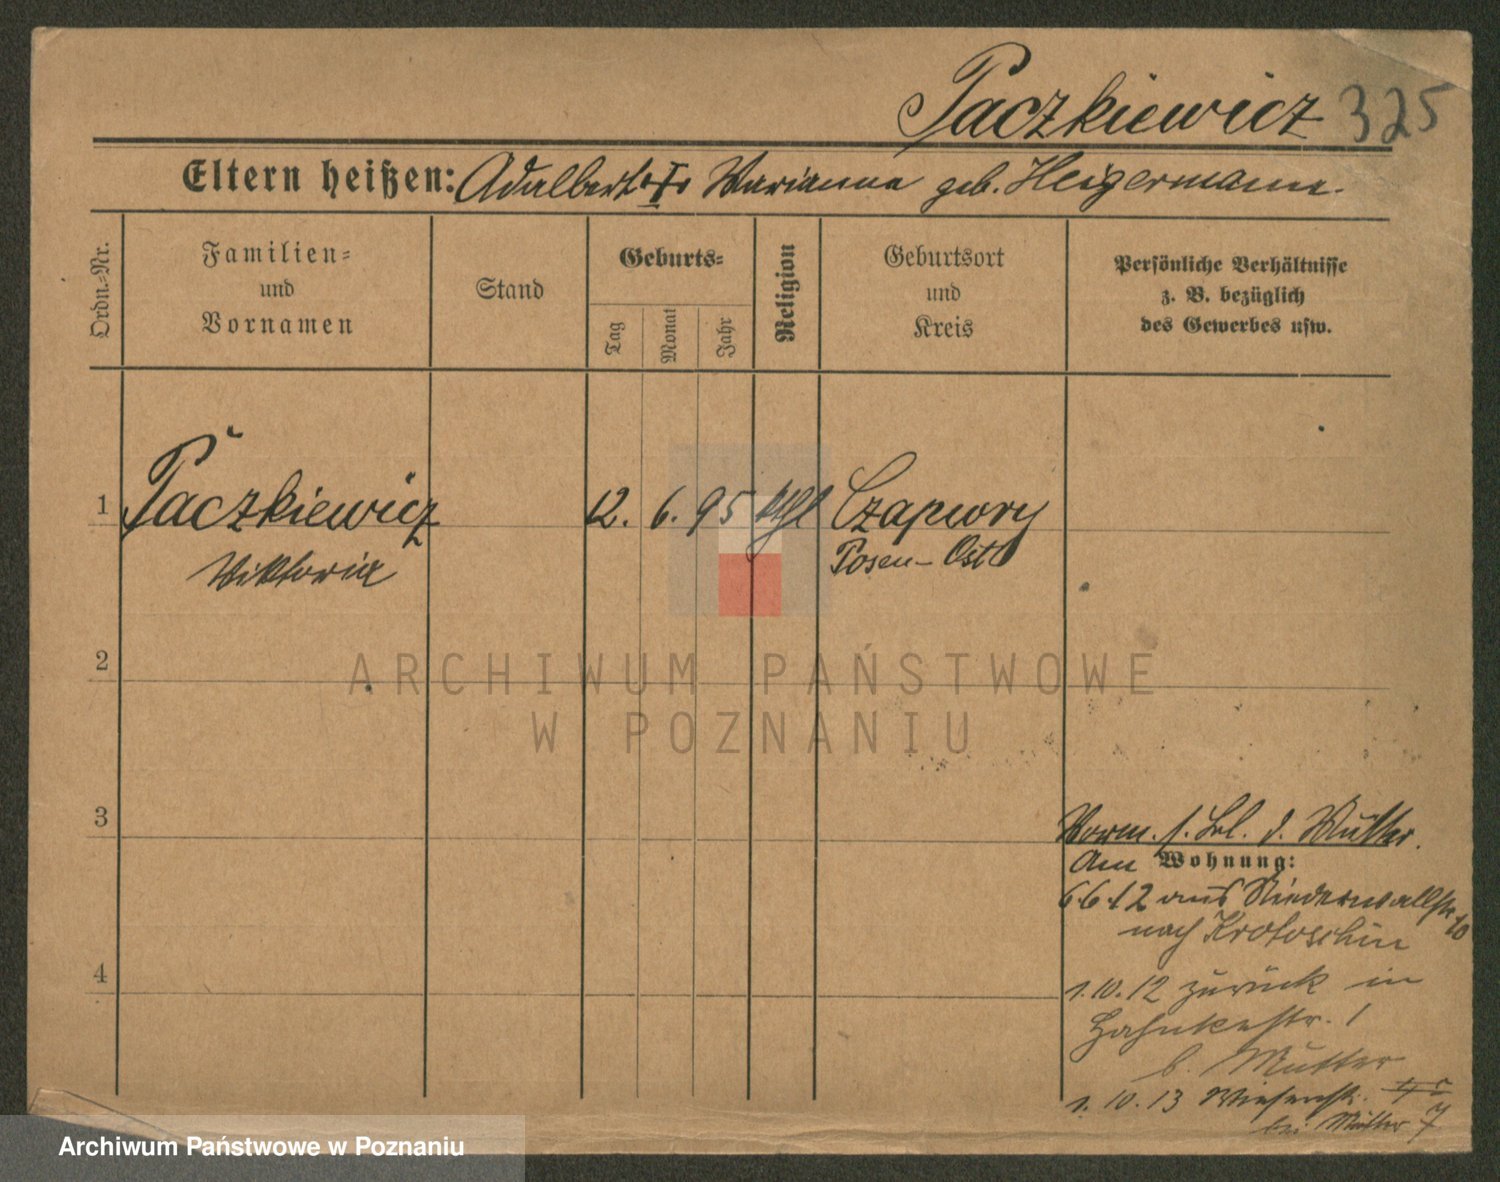 Paczkiewicz 325
Eltern heißen: Adalbert u. Marianna geb. Heigermann.
Ordn.-Nr.
Familien-
und
Vornamen
Stand
Geburts-
Tag
Monat
Jahr
Religion
Geburtsort
und
Kreis
Persönliche Verhältnisse
z. B. bezüglich
des Gewerbes usw.
1 Paczkiewicz 12. 6. 95 kthl Czapury
Viktoria Posen-Ost
2
ARCHIWUM PAŃSTWOWE
W POZNANIU
3
Vorm. s. Bl. d. Mutter.
Am Wohnung:
6.6.12 aus Niederwallstr. 10
nach Krotoschin
4
1.10.12 zurück in
Hahnkestr. 1
b. Mutter
1.10.13 Wiesenstr. 7
bei Mutter
Archiwum Państwowe w Poznaniu